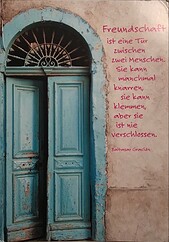 Freundschaft
ist eine Tür
zwischen
zwei Menschen.
Sie kann
manchmal
knarren,
sie kann
klemmen,
aber sie
ist nie
verschlossen.